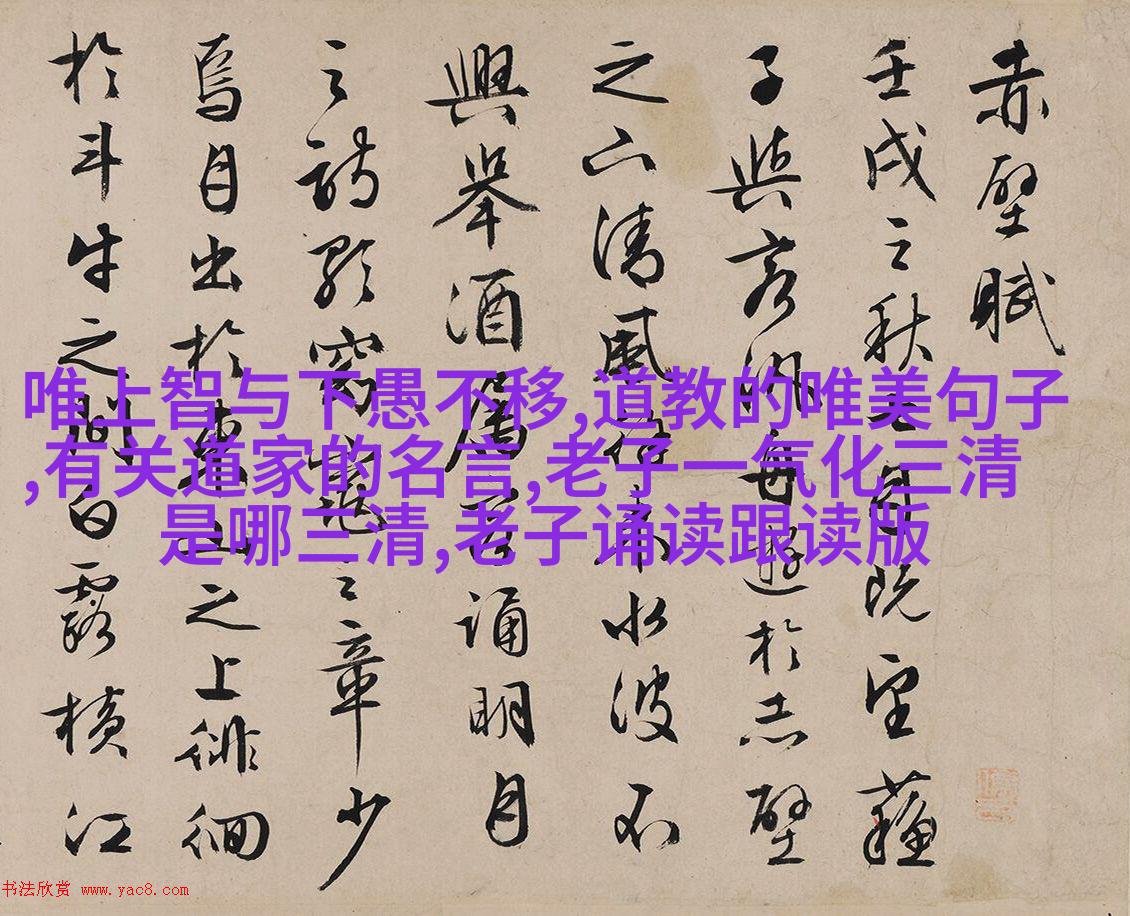 赤壁賦
壬戌之秋七月既望蘇
子與客泛舟遊於赤壁
之下清風徐來水波不
興舉酒屬客誦明月
之詩歌窈窕之章少
焉月出於東山之上徘徊
於斗牛之間白露橫江
唯上智与下愚不移,道教的唯美句子
,有关道家的名言,老子一气化三清
是哪三清,老子诵读跟读版
书法欣赏 www.yac8.com